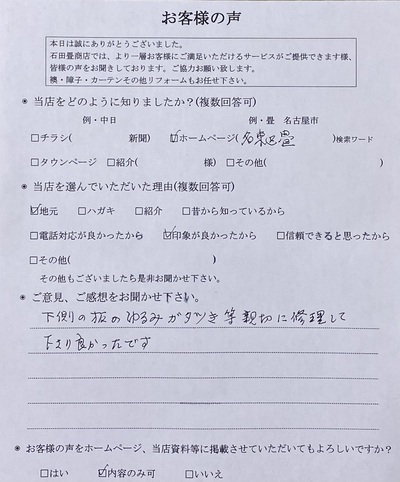 お客様の声
本日は誠にありがとうございました。
石田畳商店では、より一層お客様にご満足いただけるサービスがご提供できます様、
皆様の声をお聞きしております。ご協力お願い致します。
襖・障子・カーテンその他リフォームもお任せ下さい。
◉ 当店をどのように知りましたか？(複数回答可)
例・中日 例・畳 名古屋市
□チラシ( 新聞) ☑ホームページ( 畳 )検索ワード
□タウンページ □紹介( 様) □その他( )
◉ 当店を選んでいただいた理由(複数回答可)
☑地元 □ハガキ □紹介 □昔から知っているから
□電話対応が良かったから ☑印象が良かったから □信頼できると思ったから
□その他( )
その他もございましたら是非お聞かせ下さい。
◉ ご意見、ご感想をお聞かせ下さい。
下側の板のゆるみガタツキ等親切に修理して
下さり良かったです
◉ お客様の声をホームページ、当店資料等に掲載させていただいてもよろしいですか？
□はい ☑内容のみ可 □いいえ